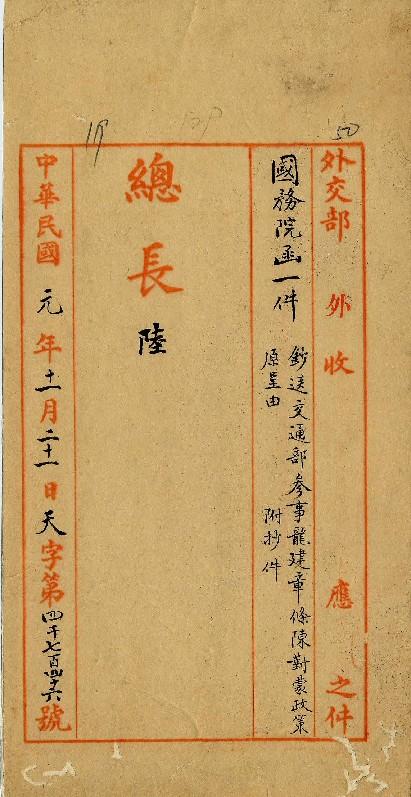 50
外交部 外收 應 之件
國務院函一件
鈔送交通部參事龍建章條陳對蒙政策
原呈由 附抄件
總長 陸
中華民國元年十一月二十一日天字第四千七百四十六號